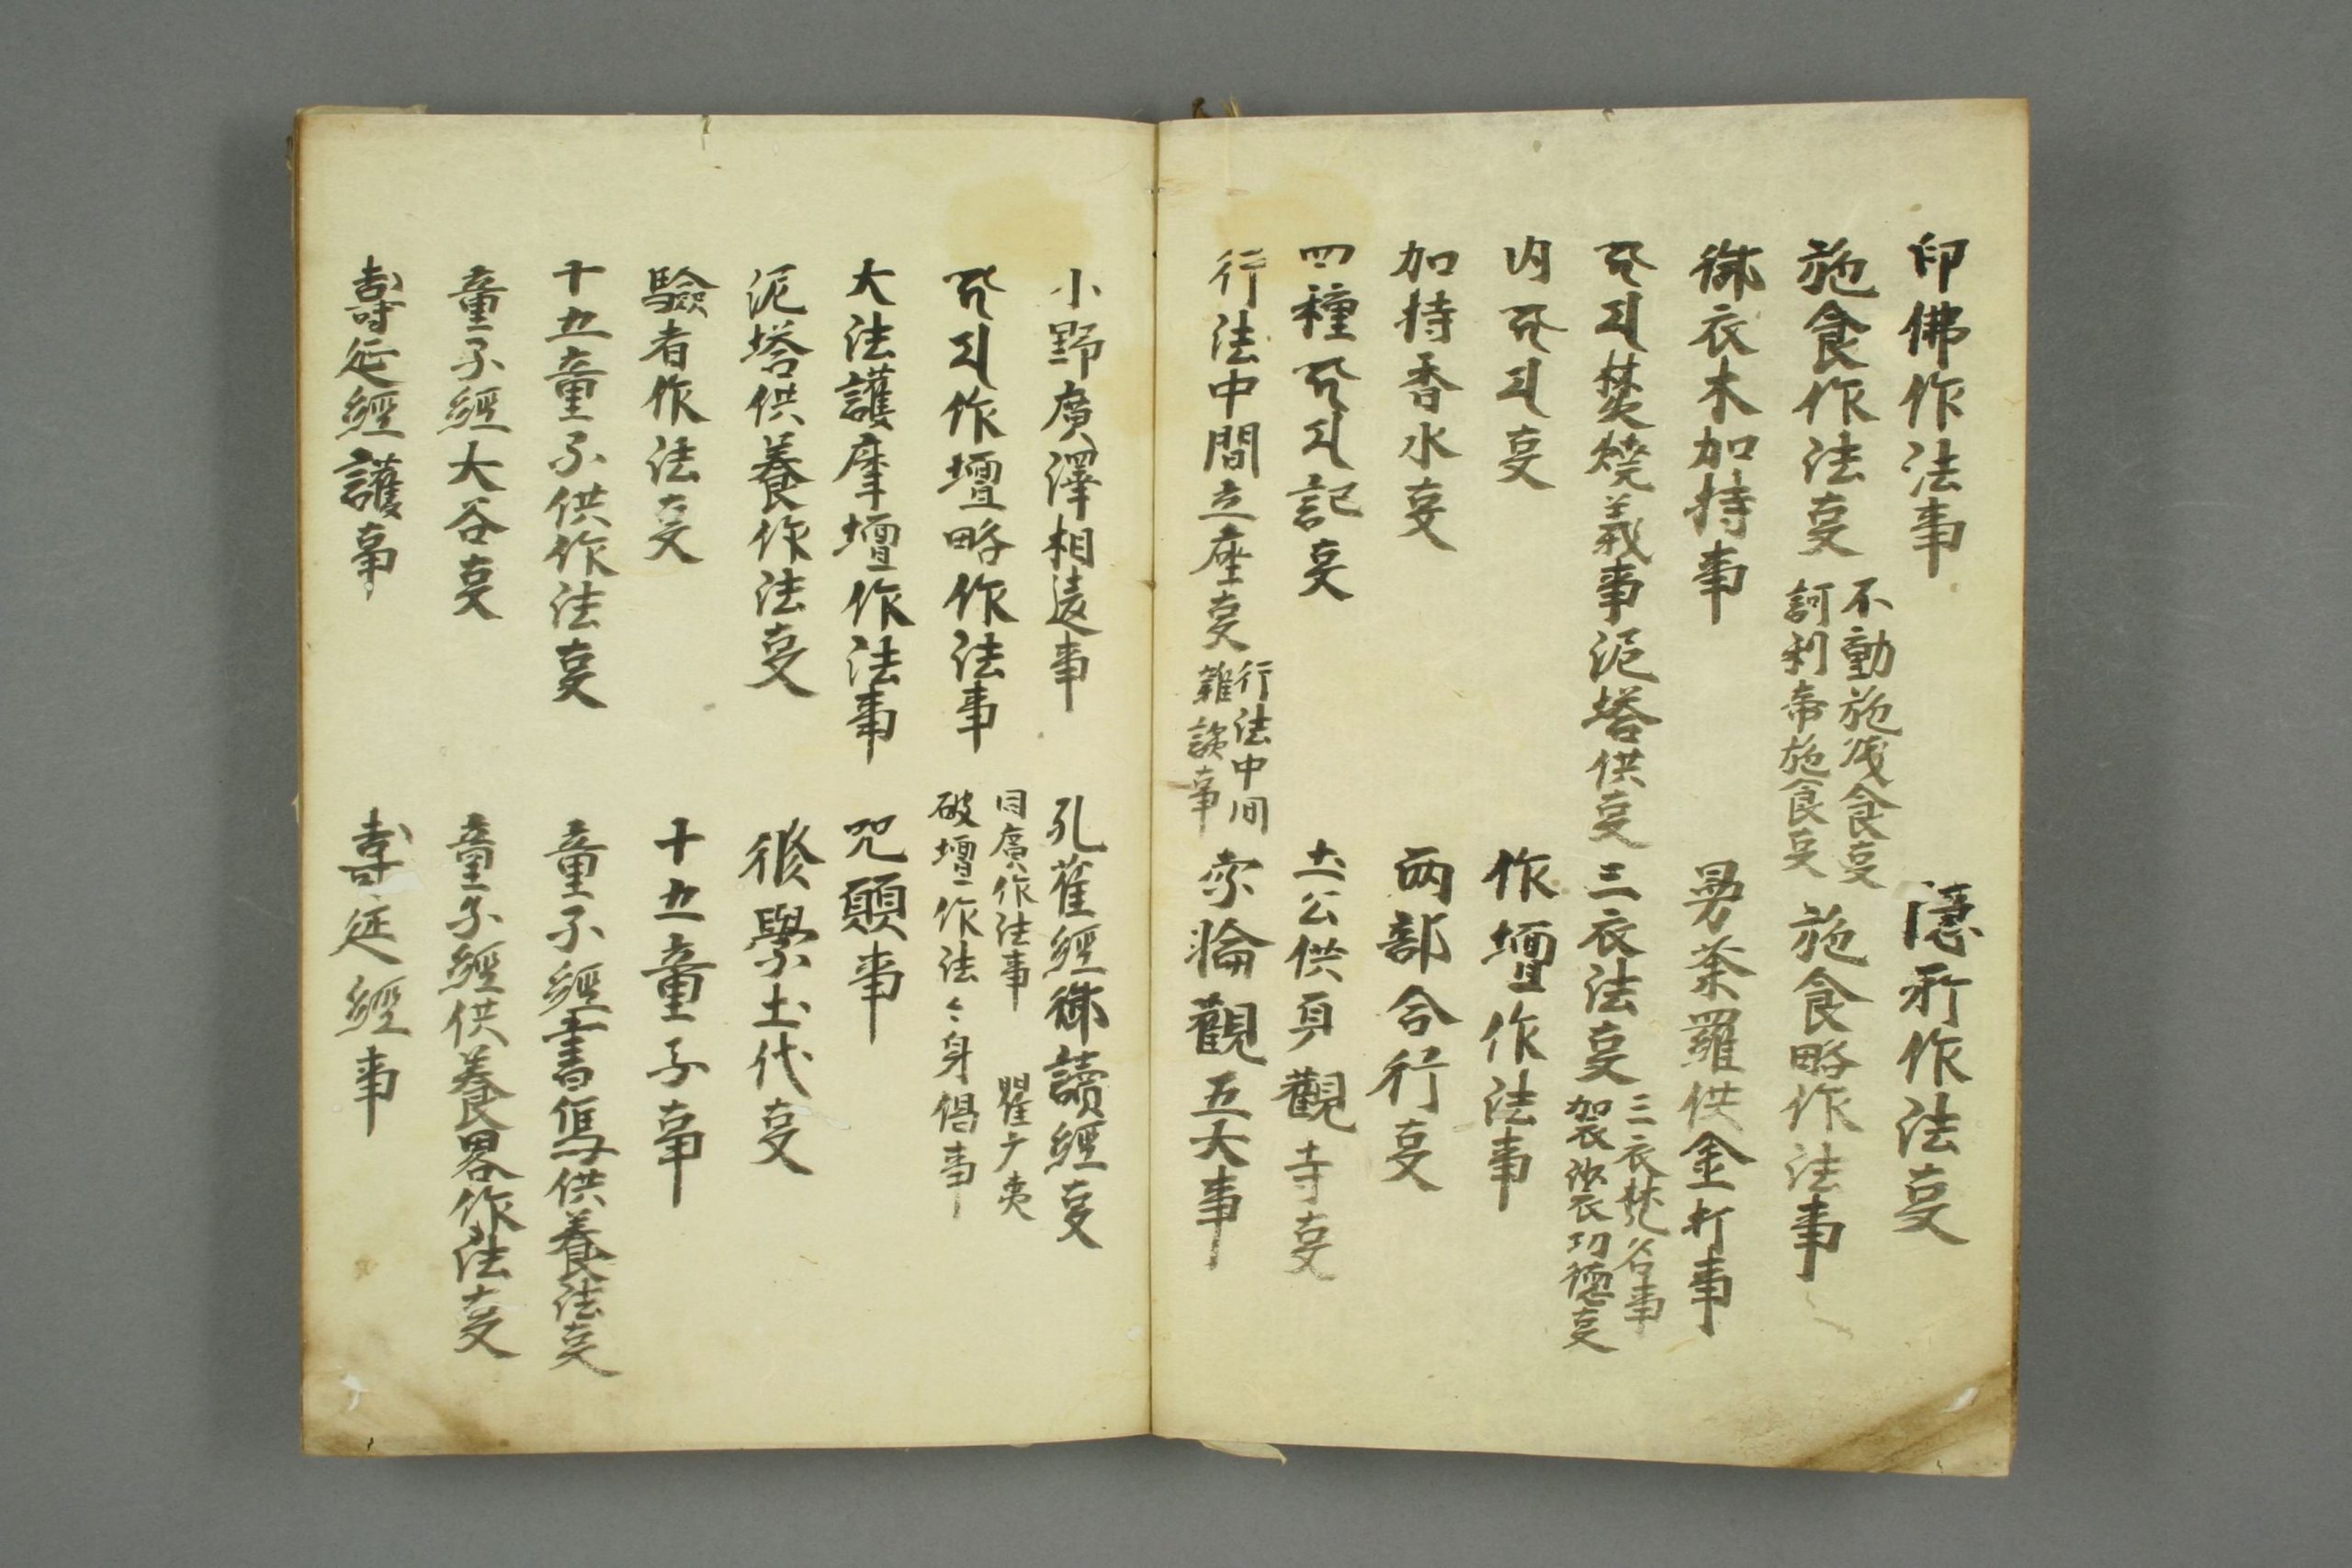 印佛作法事
隱形作法叓
施食作法叓
不動施残食叓
訶利帝施食叓
施食略作法事
御衣木加持事
曼荼羅供金打事
焚燒義事泥塔供叓
三衣法叓
三衣梵名事
袈裟功德叓
内 叓
作壇作法事
加持香水叓
兩部合行叓
四種 記叓
土公供 觀寺叓
行法中間立座叓
行法中间
雜談事
字輪觀五大事
小野廣澤相違事
孔雀經御讀經叓
作壇略作法事
同廣作法事
破壇作法々身偈事
大法護摩壇作法事
咒願事
泥塔供養作法叓
修學土代叓
驗者作法叓
十五童子事
十五童子供作法叓
童子經書寫供養法叓
童子經大谷叓
童子經供養畧作法叓
壽延經護事
壽延經事